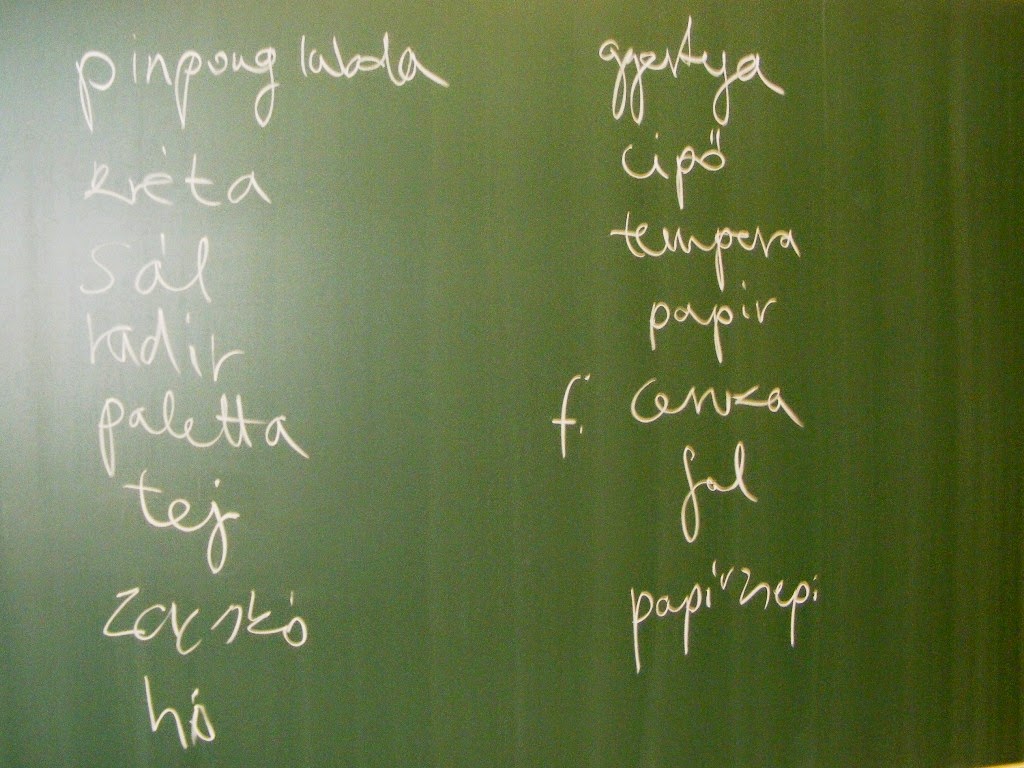 pinpong labda
kréta
sál
radír
paletta
tej
zacskó
hó
gyertya
cipő
tempera
papír
f. ceruza
fal
papírzsepi